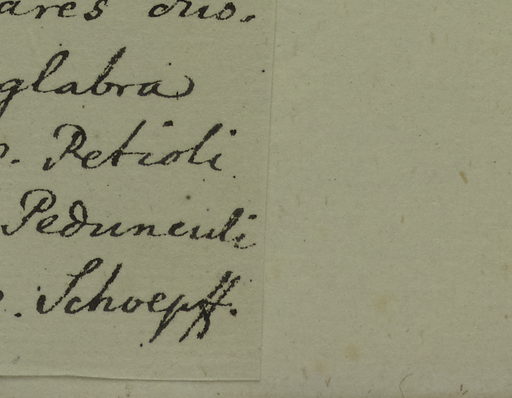 ares duo.
glabra
. Petioli
Pedunculi
. Schoepff.